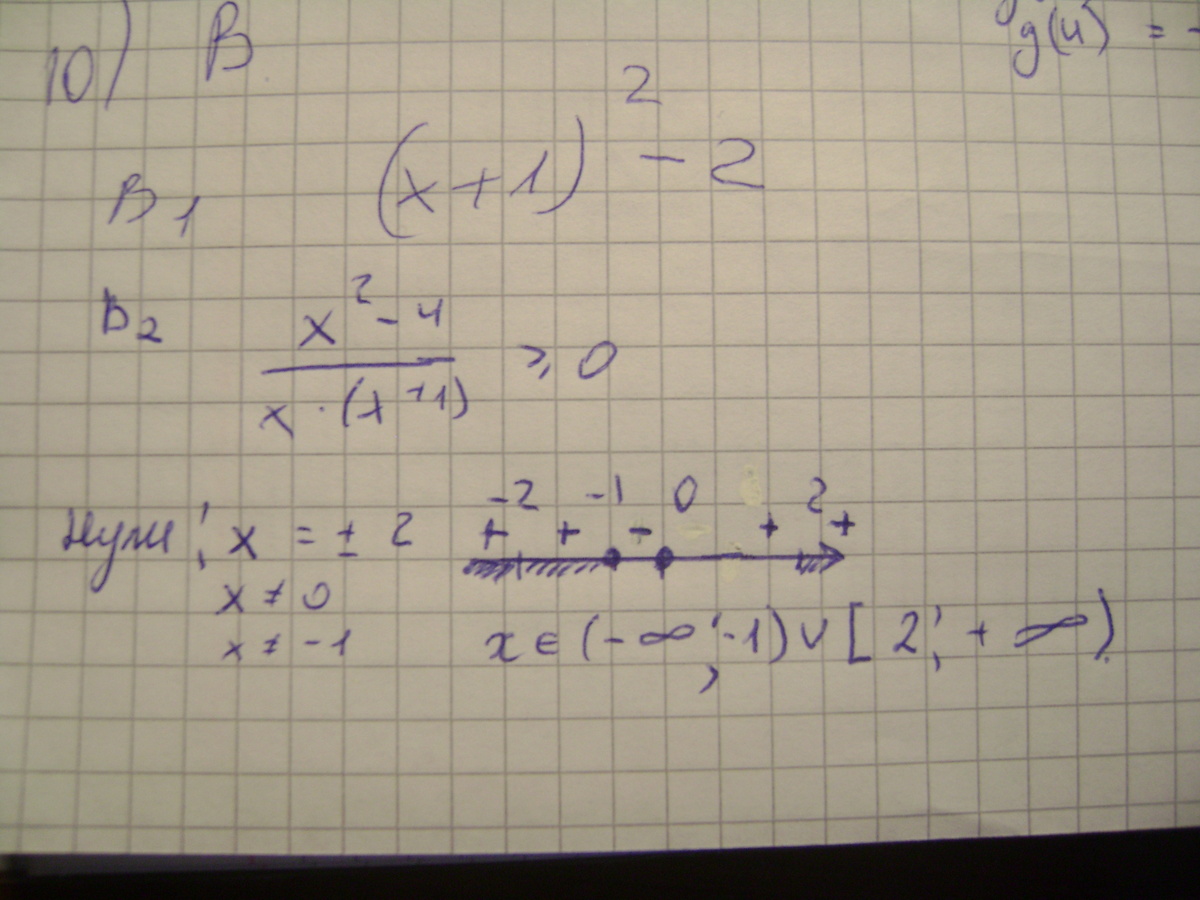 10) В
g(4) = -
В1 (x+1)² - 2
В2 x² - 4
x · (x+1) ≥ 0
Нули: x = ± 2
x ≠ 0
x ≠ -1
-2 -1 0 2
+ + - + +
x ∈ (-∞; -1) ∪ [2; +∞)